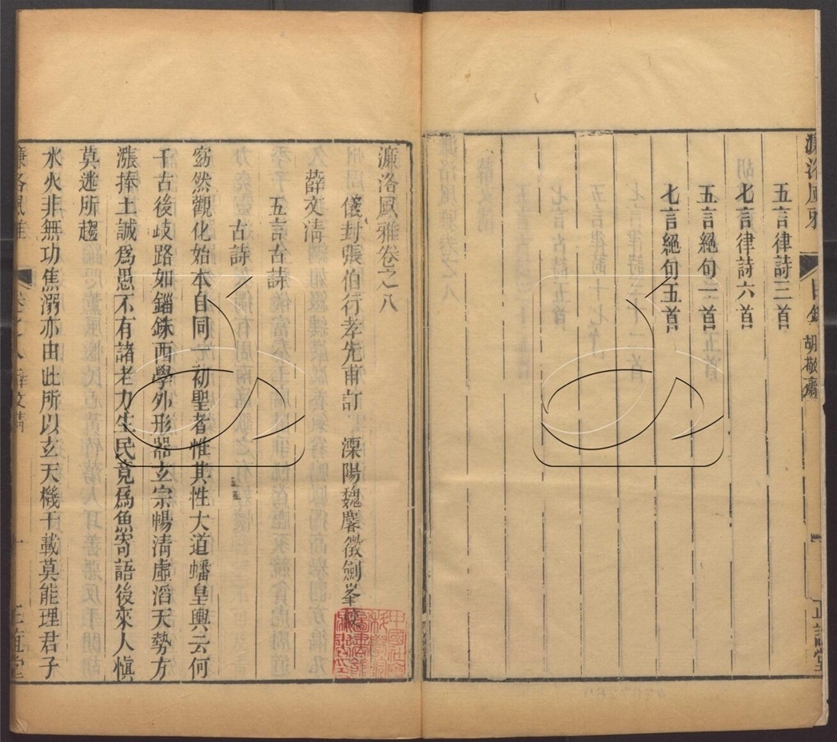 濂洛風雅
目錄
胡敬齋
正誼堂
五言律詩三首
七言律詩六首
五言絕句一首
七言絕句五首
濂洛風雅卷之八
儀封張伯行孝先甫訂 溧陽魏麐徵劍峯
薛文清
五言古詩
古詩
窈然觀化始本自同一初聖者惟其性大道皤皇輿云何
千古後歧路如錙銖西學外形器玄宗暢清虛滔天勢方
漲捧土誠為愚不有諸老力生民竟為魚寄語後來人愼
莫迷所趨
水火非無功焦溺亦由此所以玄天機千載莫能理君子
濂洛風雅
卷之八
薛文清
一
正誼堂